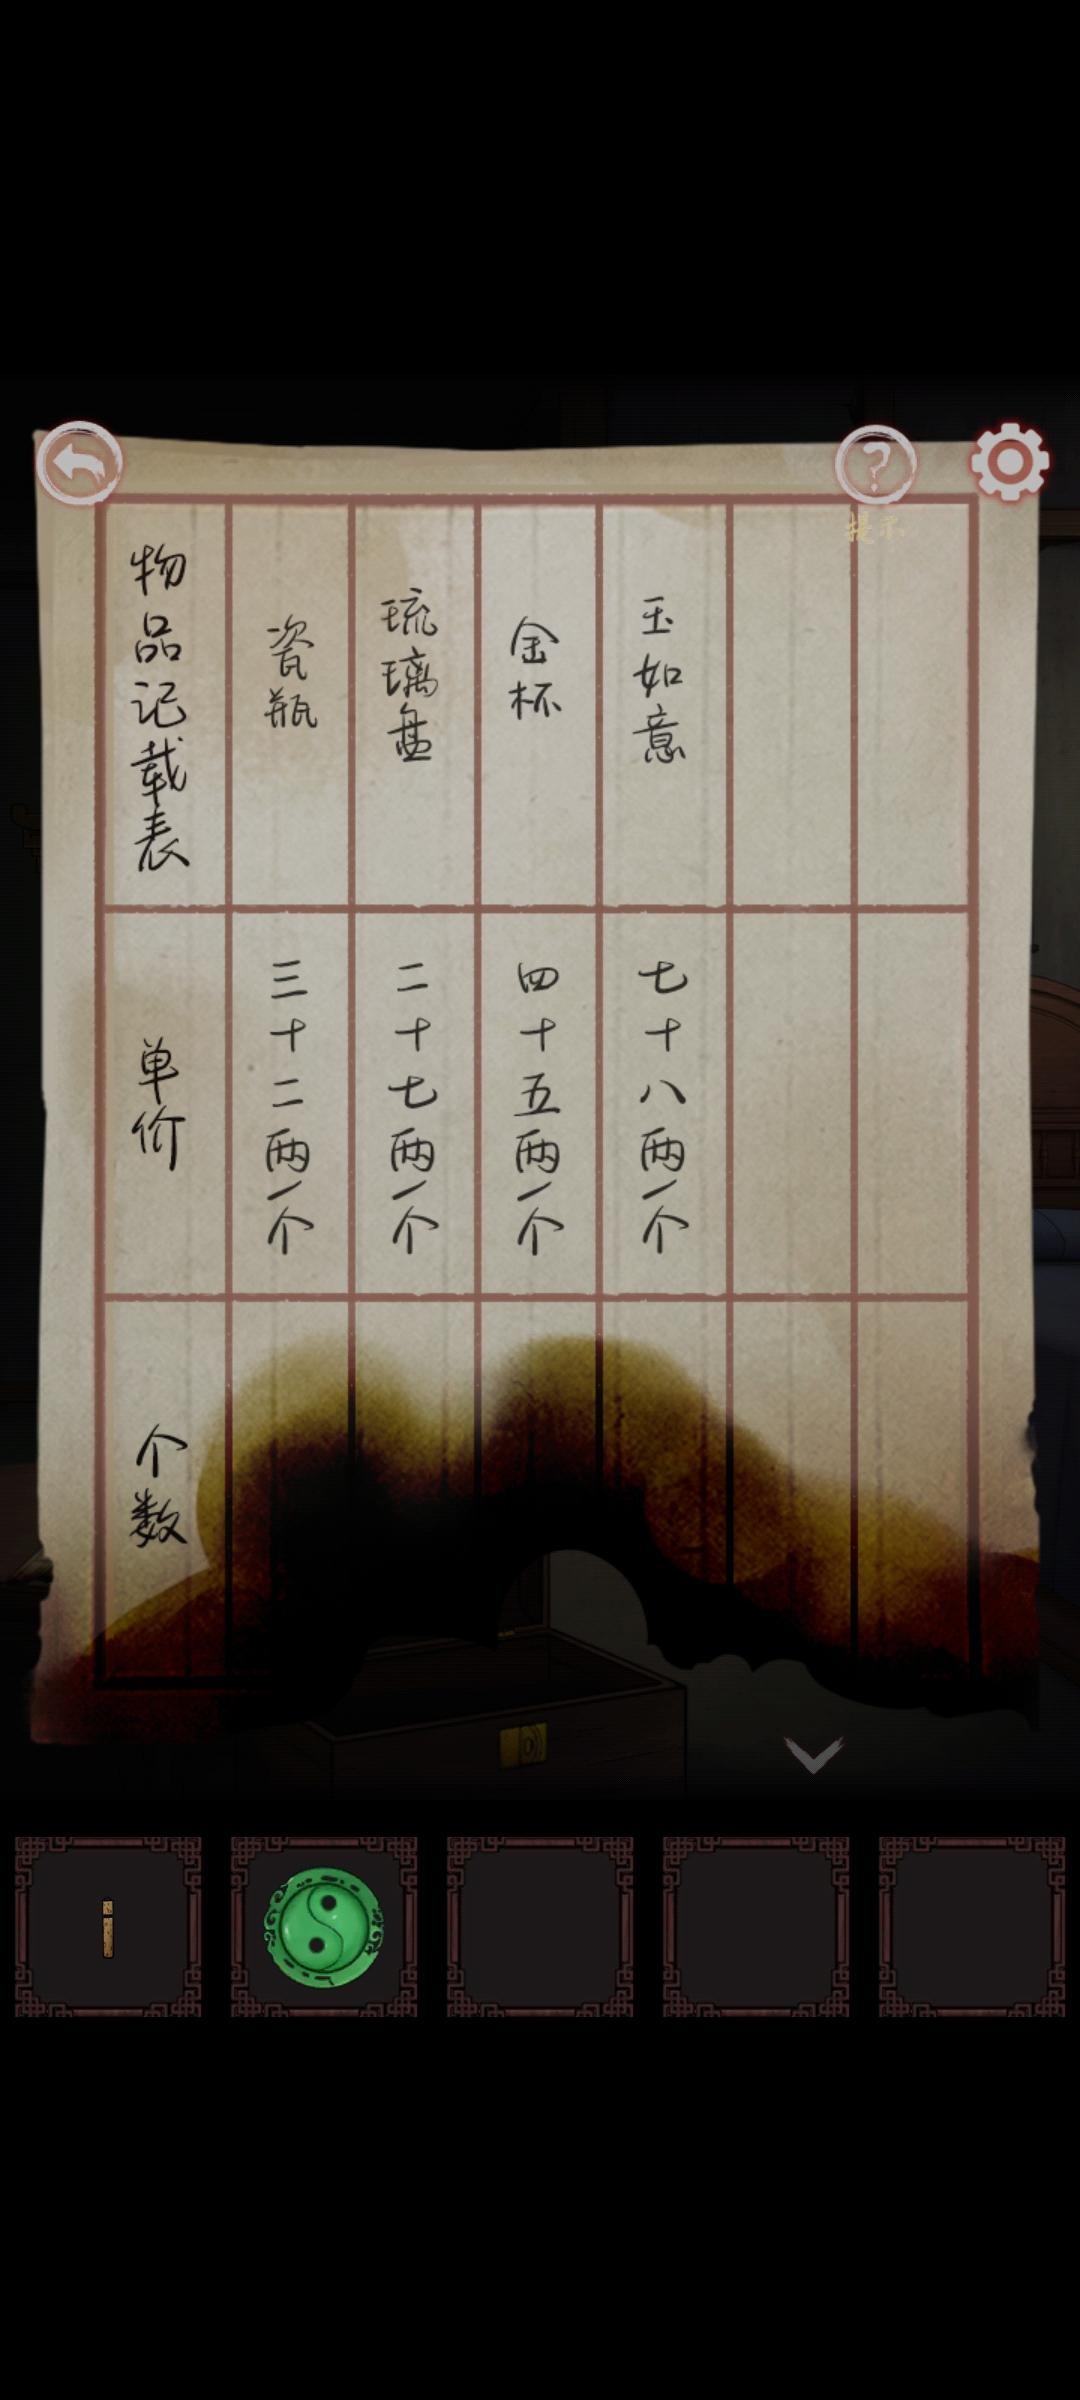 提示
物品记载表
瓷瓶
琉璃盘
金杯
玉如意
单价
三十二两一个
二十七两一个
四十五两一个
七十八两一个
个数